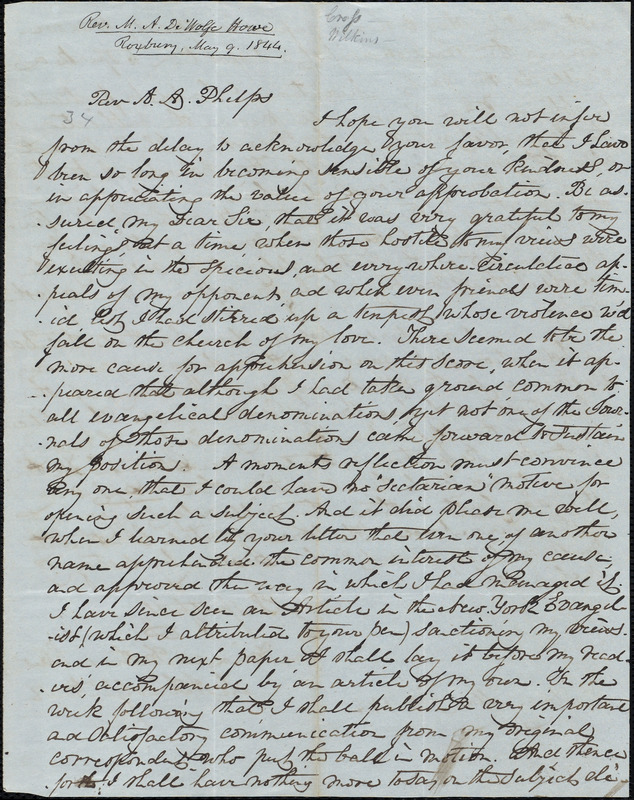 Rev. M. A. DeWolfe Howe
Roxbury, May 9. 1844.
Cross
Wilkins
34
Rev A. A. Phelps
I hope you will not infer
from the delay to acknowledge your favor, that I have
been so long in becoming sensible of your kindness, or
in appreciating the value of your approbation. Be as-
sured, my Dear Sir, that it was very grateful to my
feelings at a time, when those hostile to my views were
exulting in the specious, and every where circulated ap-
-peals of my opponents and when even friends were tim-
-id, lest I had stirred up a tempest whose violence wd
fall on the church of my love. There seemed to be the
more cause for apprehension on this score, when it ap-
-peared that although I had taken ground common to
all evangelical denominations, yet not one of the Jour-
-nals of those denominations came forward to sustain
my position. A moment's reflection must convince
any one, that I could have no 'sectarian' motive for
opening such a subject. And it did please me well,
when I learned by your letter that even one, of another
name apprehended the common interest of my cause,
and approved the way in which I had managed it.
I have since seen an Article in the New York Evangel-
-ist (which I attributed to your pen) sanctioning my views.
and in my next paper I shall lay it before my read-
-ers, accompanied by an article of my own. In the
week following that, I shall publish a very important
and satisfactory communication from my original
correspondent who put the ball in motion. And thence
forth I shall have nothing more to say on the subject